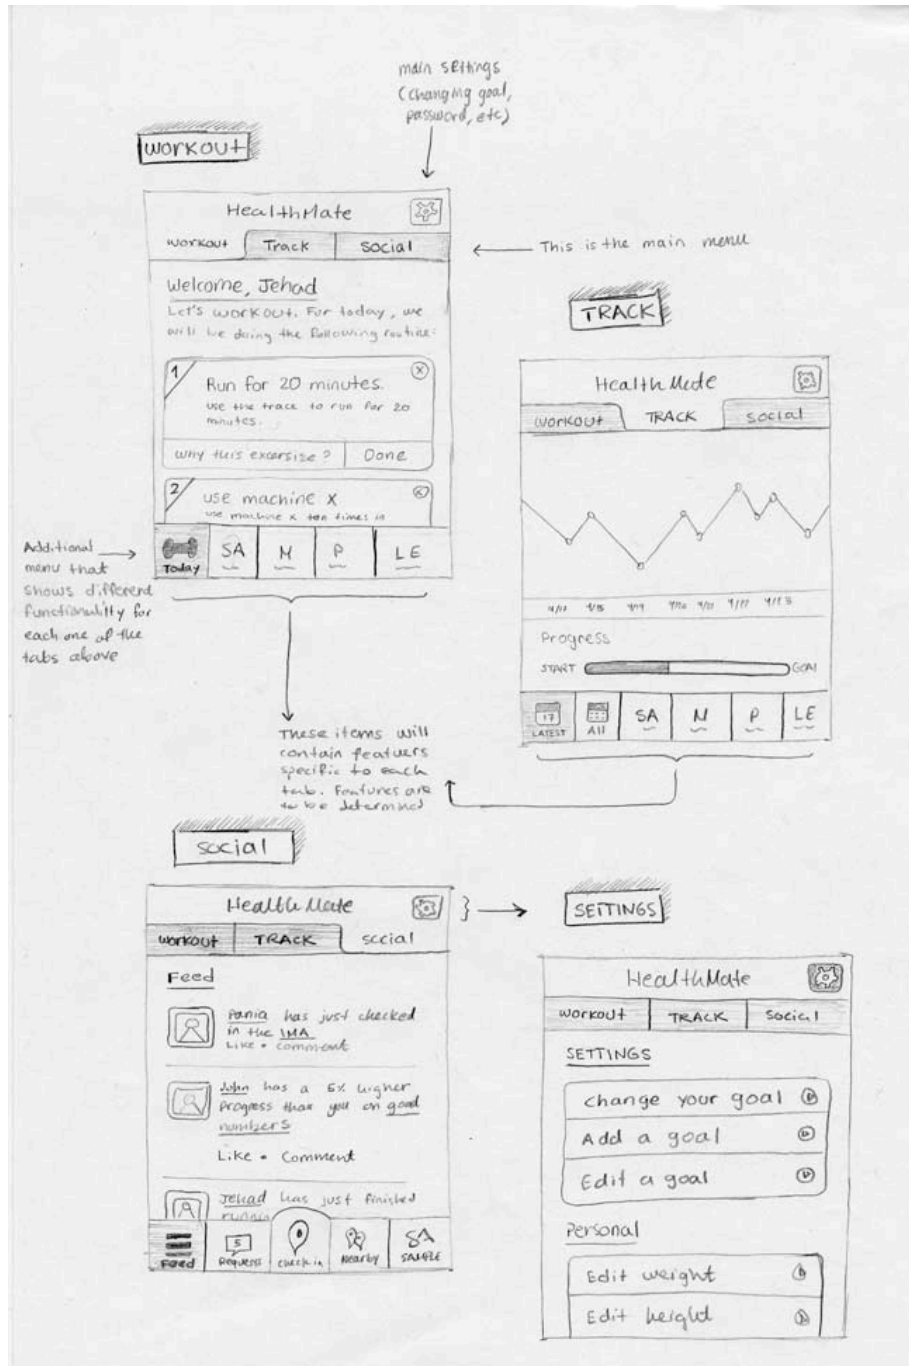 main settings
(changing goal,
password, etc)
WORKOUT
HealthMate
workout Track social
This is the main menu
Welcome, Jehad
Let's workout. For today, we
will be doing the following routine:
1
Run for 20 minutes.
use the track to run for 20
minutes.
Why this excersize? Done
2
use machine x
use machine x ten times in
Today SA M P LE
Additional
menu that
shows different
functionality for
each one of the
tabs above
These items will
contain featuers
specific to each
tab. Features are
to be determined
TRACK
HealthMate
workout TRACK social
Progress
START GOAL
17
LATEST All SA M P LE
social
HealthMate
workout TRACK social
Feed
Rania has just checked
in the IMA
Like • comment
John has a 5% higher
Progress than you on good
numbers
Like • Comment
Jehad has just finished
Feed
5
Requests
check in
Nearby
SA
SAMPLE
SETTINGS
HealthMate
workout TRACK Social
SETTINGS
change your goal
Add a goal
Edit a goal
Personal
Edit weight
Edit height